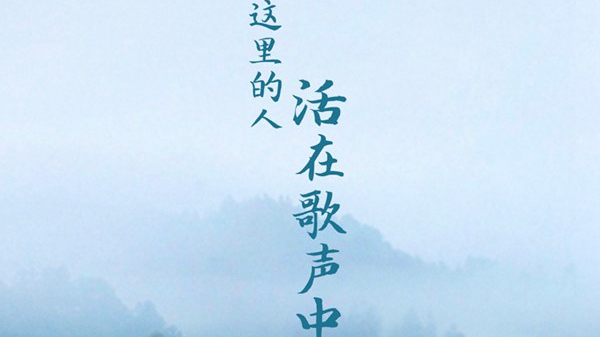 这里的人
活在歌声中